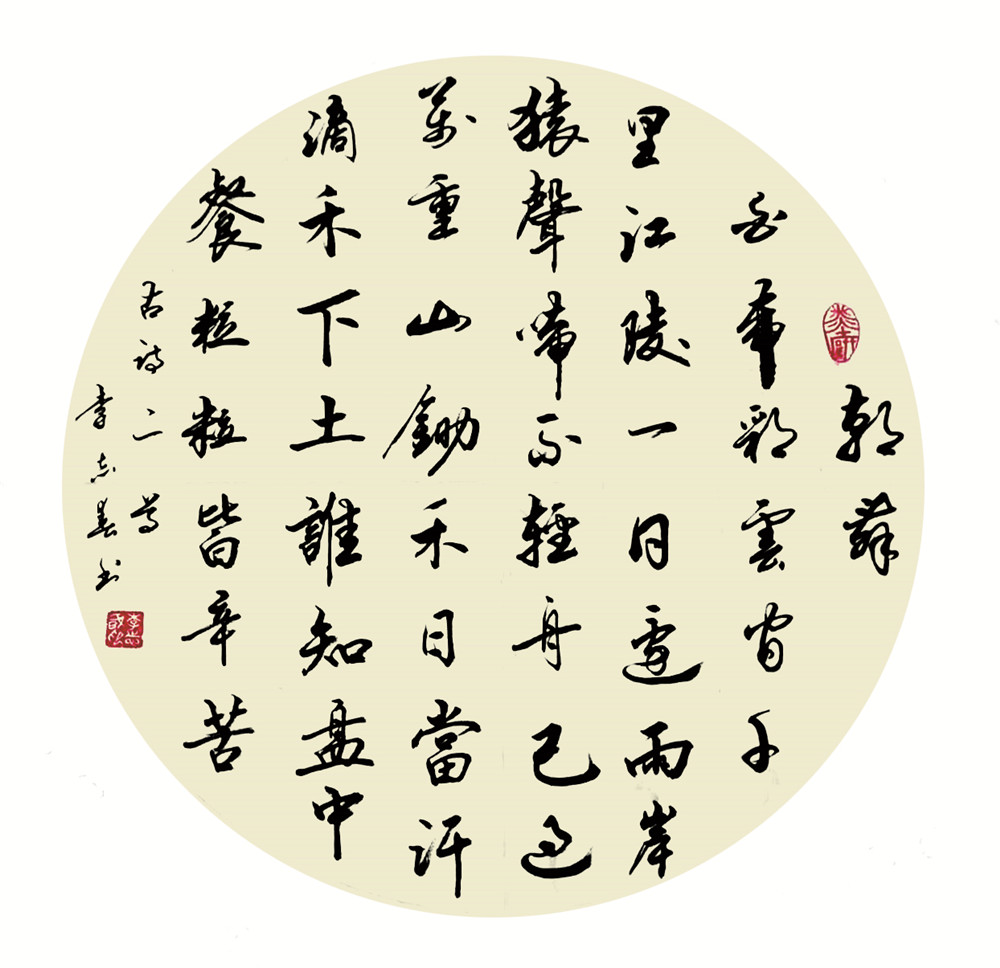 朝辭
白帝彩雲間千
里江陵一日還兩岸
猿聲啼不輕舟已過
萬重山鋤禾日當汗
滴禾下土誰知盘中
餐粒粒皆辛苦
古詩二首
李志春书